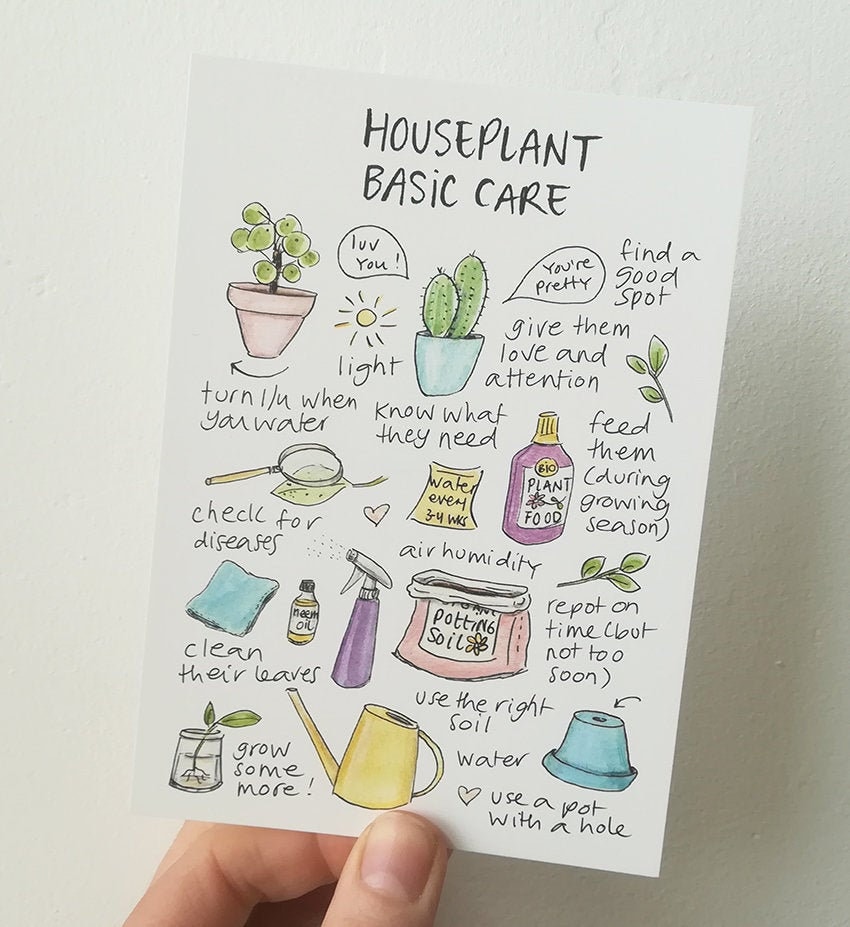 HOUSEPLANT
BASIC CARE
luv
you!
You're
pretty
find a
good
spot
light
give them
love and
attention
turn 1/4 when
you water
know what
they need
feed
them
(during
growing
season)
water
every
3-4 wks
BIO
PLANT
FOOD
check for
diseases
air humidity
neem
oil
clean
their leaves
Potting
Soil
repot on
time (but
not too
soon)
use the right
soil
grow
some
more!
water
use a pot
with a hole